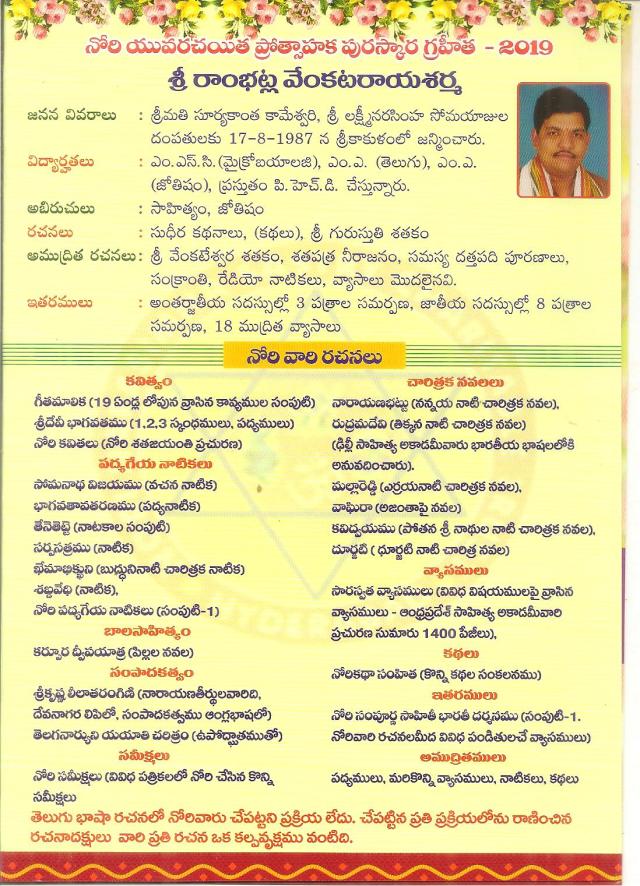 నోరి యువరచయిత ప్రోత్సాహక పురస్కార గ్రహీత - 2019
శ్రీ రాంభట్ల వేంకటరాయశర్మ
జనన వివరాలు : శ్రీమతి సూర్యకాంత కామేశ్వరి, శ్రీ లక్ష్మీనరసింహ సోమయాజుల
దంపతులకు 17-8-1987 న శ్రీకాకుళంలో జన్మించారు.
విద్యార్హతలు : ఎం.ఎస్.సి.(మైక్రోబయాలజి), ఎం.ఎ. (తెలుగు), ఎం.ఎ.
(జోతిషం), ప్రస్తుతం పి.హెచ్.డి. చేస్తున్నారు.
అబిరుచులు : సాహిత్యం, జోతిషం
రచనలు : సుధీర కథనాలు, (కథలు), శ్రీ గురుస్తుతి శతకం
అముద్రిత రచనలు: శ్రీ వేంకటేశ్వర శతకం, శతపత్ర నీరాజనం, సమస్య దత్తపది పూరణాలు,
సంక్రాంతి, రేడియో నాటికలు, వ్యాసాలు మొదలైనవి.
ఇతరములు : అంతర్జాతీయ సదస్సుల్లో 3 పత్రాల సమర్పణ, జాతీయ సదస్సుల్లో 8 పత్రాల
సమర్పణ, 18 ముద్రిత వ్యాసాలు
నోరి వారి రచనలు
కవిత్వం
గీతమాలిక (19 ఏండ్ల లోపున వ్రాసిన కావ్యముల సంపుటి)
శ్రీదేవీ భాగవతము (1,2,3 స్కంధములు, పద్యములు)
నోరి కవితలు (నోరి శతజయంతి ప్రచురణ)
పద్యగేయ నాటికలు
సోమనాథ విజయము (వచన నాటిక)
భాగవతావతరణము (పద్యనాటిక)
తేనెతెట్టె (నాటకాల సంపుటి)
సర్పసత్రము (నాటిక)
ఖేమాభిఖ్ఖుని (బుద్ధునినాటి చారిత్రక నాటిక)
శబ్దవేధి (నాటిక),
నోరి పద్యగేయ నాటికలు (సంపుటి-1)
బాలసాహిత్యం
కర్పూర ద్వీపయాత్ర (పిల్లల నవల)
సంపాదకత్వం
శ్రీకృష్ణ లీలాతరంగిణి (నారాయణతీర్థులవారిది,
దేవనాగర లిపిలో, సంపాదకత్వము ఆంగ్లభాషలో)
తెలగనార్యుని యయాతి చరిత్రం (ఉపోద్ఘాతముతో)
సమీక్షలు
నోరి సమీక్షలు (వివిధ పత్రికలలో నోరి చేసిన కొన్ని
సమీక్షలు
చారిత్రక నవలలు
నారాయణభట్టు (నన్నయ నాటి చారిత్రక నవల),
రుద్రమదేవి (తిక్కన నాటి చారిత్రక నవల)
(ఢిల్లీ సాహిత్య అకాడమీవారు భారతీయ భాషలలోకి
అనువదించారు).
మల్లారెడ్డి (ఎర్రయనాటి చారిత్రక నవల),
వాఘిరా (అజంతాపై నవల)
కవిద్వయము (పోతన శ్రీ నాథుల నాటి చారిత్రక నవల),
దూర్జటి ( ధూర్జటి నాటి చారిత్ర నవల)
వ్యాసములు
సారస్వత వ్యాసములు (వివిధ విషయములపై వ్రాసిన
వ్యాసములు - ఆంధ్రప్రదేశ్ సాహిత్య అకాడమీవారి
ప్రచురణ సుమారు 1400 పేజీలు),
కథలు
నోరికథా సంహిత (కొన్ని కథల సంకలనము)
ఇతరములు
నోరి సంపూర్ణ సాహితీ భారతీ దర్శనము (సంపుటి-1.
నోరివారి రచనలమీద వివిధ పండితులచే వ్యాసములు)
అముద్రితములు
పద్యములు, మరికొన్ని వ్యాసములు, నాటికలు, కథలు
తెలుగు భాషా రచనలో నోరివారు చేపట్టని ప్రక్రియ లేదు. చేపట్టిన ప్రతి ప్రక్రియలోను రాణించిన
రచనాదక్షులు వారి ప్రతి రచన ఒక కల్పవృక్షము వంటిది.